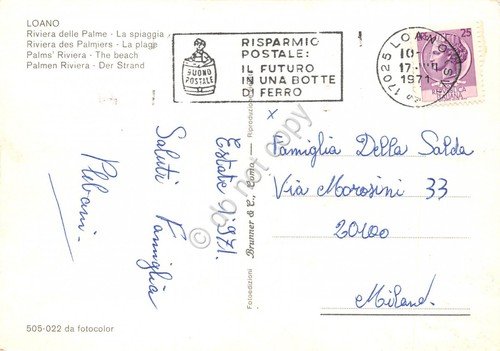 LOANO
Riviera delle Palme - La spiaggia
Riviera des Palmiers - La plage
Palms' Riviera - The beach
Palmen Riviera - Der Strand
BUONO
POSTALE
RISPARMIO
POSTALE:
IL FUTURO
IN UNA BOTTE
DI FERRO
17025 LOANO
17
1971
25
Estate 1971.
Saluti Famiglia
x
Famiglia Della Salda
Via Morosini 33
20100
Milano.
Fotoedizioni Brunner & C., Como - Riproduzione
do not copy
505-022 da fotocolor